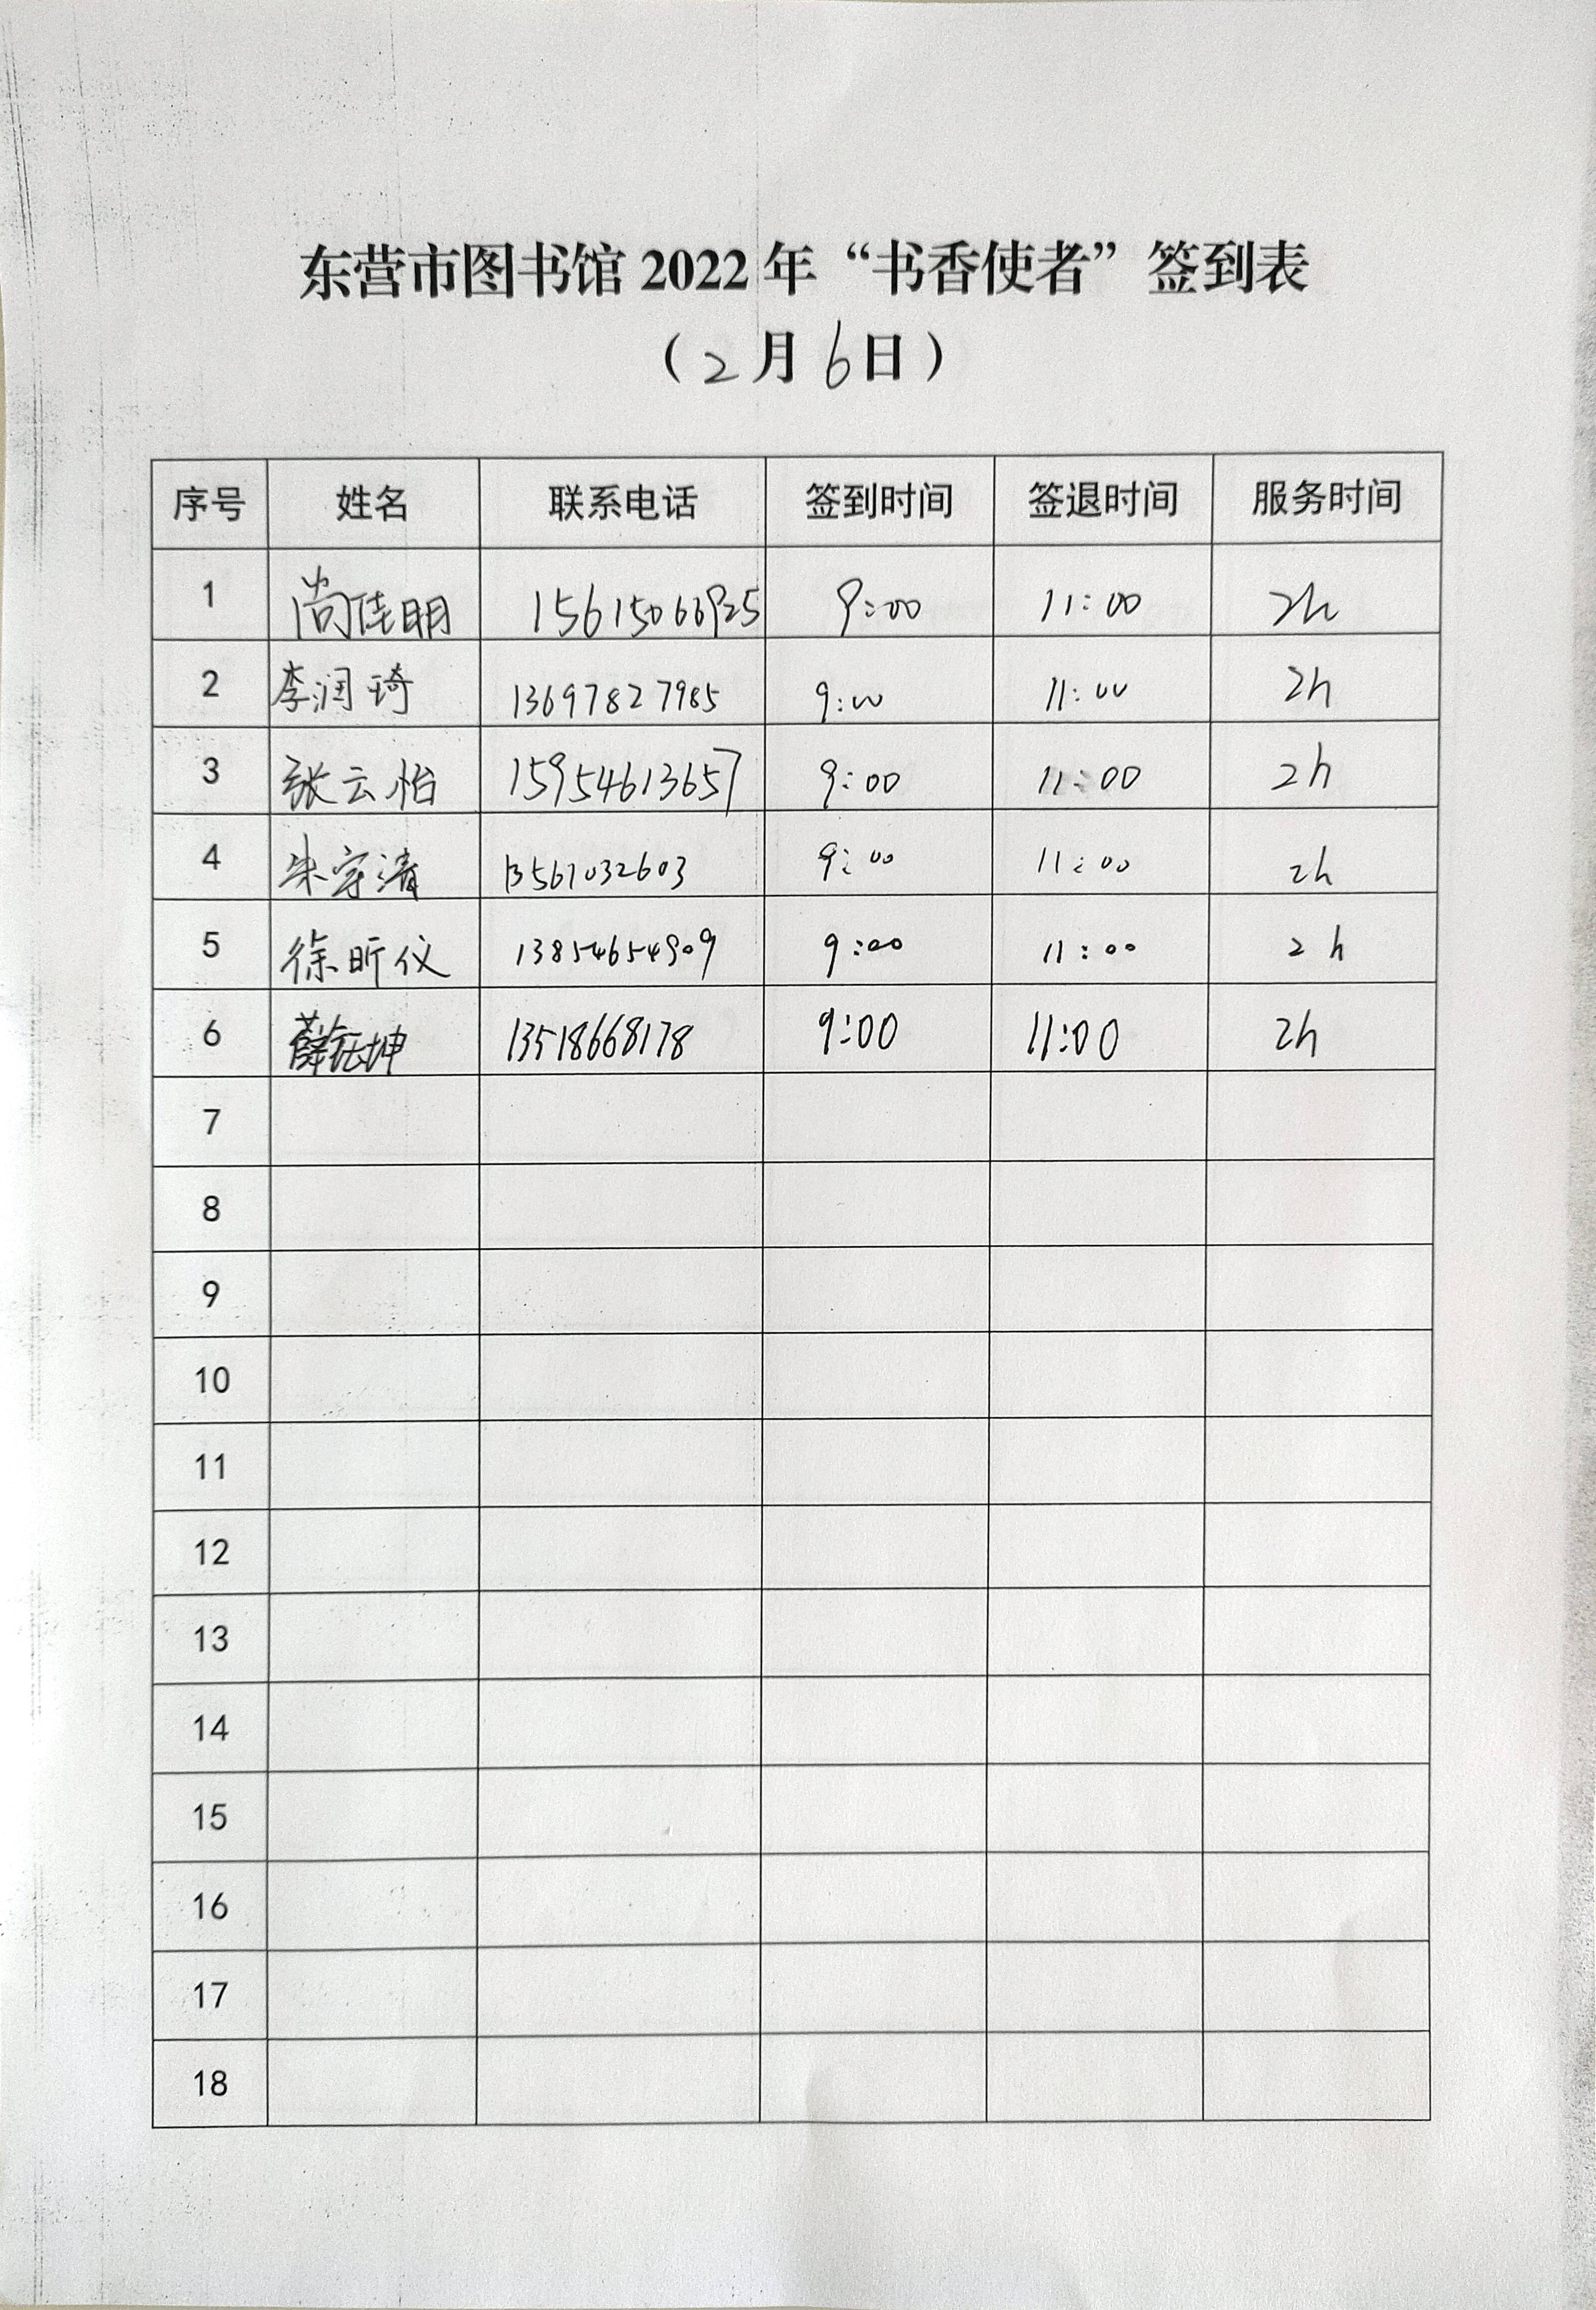 东营市图书馆 2022 年 “书香使者” 签到表
（2月6日）
序号 姓名 联系电话 签到时间 签退时间 服务时间
1 尚佳明 15615066925 9:00 11:00 2h
2 李润琦 13697827985 9:00 11:00 2h
3 张云怡 15954613657 9:00 11:00 2h
4 朱宇清 13561032603 9:00 11:00 2h
5 徐昕仪 13854654909 9:00 11:00 2h
6 薛钰坤 13518668178 9:00 11:00 2h
7
8
9
10
11
12
13
14
15
16
17
18